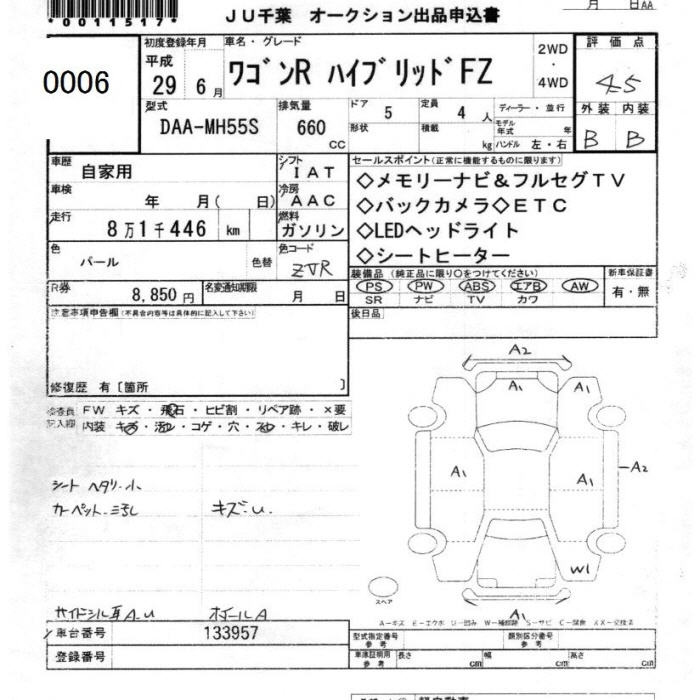 *0011517*
月 日AA
JU千葉 オークション出品申込書
0006
初度登録年月
平成
29 6月
車名・グレード
ワゴンR ハイブリッドFZ
2WD
・
4WD
評価点
4.5
外装 内装
B B
型式
DAA-MH55S
排気量
660
CC
ドア
5
形状
定員
4人
積載
kg
ディーラー・並行
モデル年式 年
ハンドル 左・右
車歴
自家用
シフト
IAT
車検
年 月( 日)
冷房
AAC
走行
8万1千446 km
燃料
ガソリン
セールスポイント(正常に機能するものに限ります)
◇メモリーナビ&フルセグTV
◇バックカメラ◇ETC
◇LEDヘッドライト
◇シートヒーター
色
パール
色替
色コード
ZVR
装備品 (純正品に限り○をつけてください)
PS PW ABS エアB AW
SR ナビ TV カワ
新車保証書
有・無
R券
8,850円
名変通知期限
月 日
後日品
注意事項申告欄(不具合内容等は具体的に記入して下さい)
修復歴 有〔箇所 〕
検査員記入欄
FW キズ・飛石・ヒビ割・リペア跡・×要
内装 キズ・汚れ・コゲ・穴・スレ・キレ・破レ
シート ヘタリ・小
カーペット・汚れ キズ・U
サイドシル耳A.U ホイールA
A2
A1 A1
A1 A1 A2
W1
A1
スペア
A-キズ E-エクボ U-凹み W-補修跡 S-サビ C-腐食 XX-交換済
車台番号 133957
登録番号
型式指定番号
参考
類別区分番号
参考
車庫証明用
参考
長さ cm
幅 cm
高さ cm
軽自動車